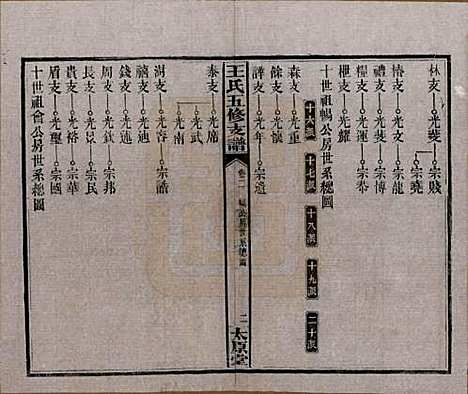 林支○光斐○宗賤
○宗堯
椿支○光文○宗龍
禮支○光斐○宗博
糧支○光燦○宗泰
柵支○光耀
十世祖暢公房世系總圖
十六派 十七派 十八派 十九派 二十派
森支○光重
餘支○光懷
諱支○光年○宗道
王氏五修支譜
卷二 暢公房世系總圖
二
太原堂
泰支○光席
○光武
○光南
澍支○光浩○宗誥
禧支○光迪
錢支○光遠
周支○光欽○宗邦
長支○光艮○宗民
貴支○光裕○宗華
眉支○光璽○宗國
十世祖會公房世系總圖